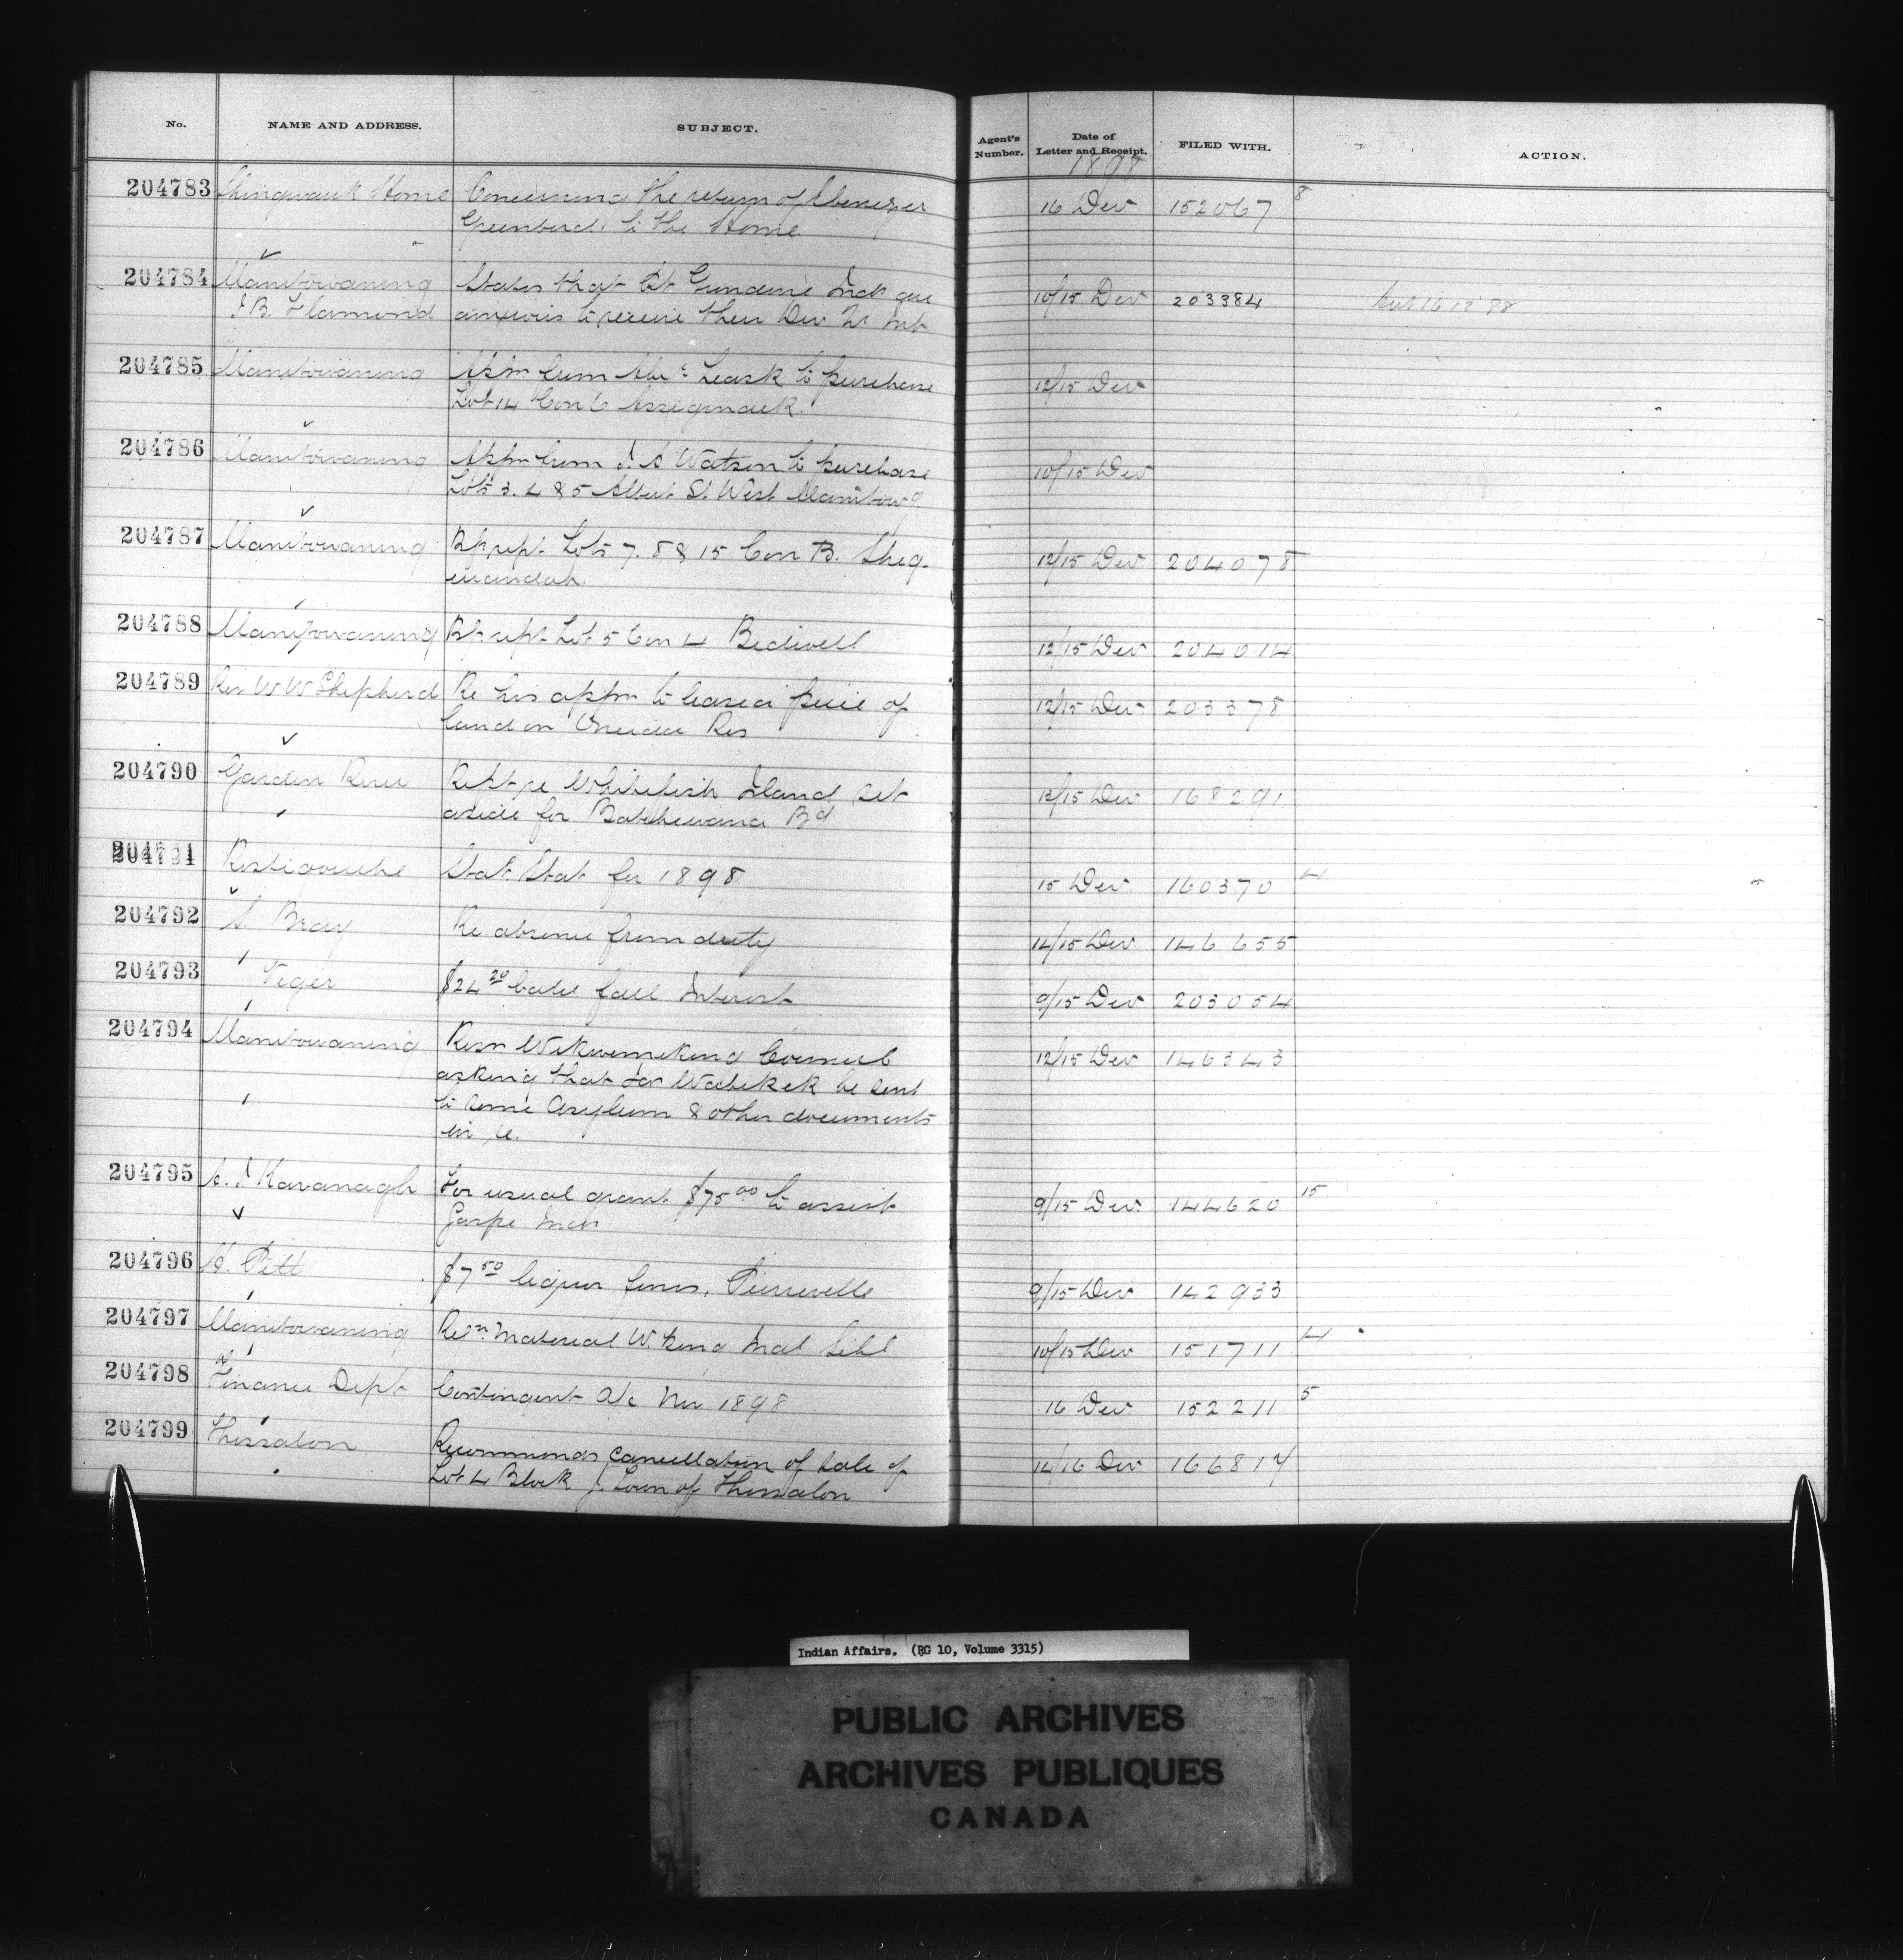 No.
NAME AND ADDRESS.
SUBJECT.
Agent's
Number.
Date of
Letter and Receipt.
FILED WITH.
ACTION.
1898
204783 Shingwauk Home Concerning the return of Ebenezer 16 Dec 152067 8
Greenbird to the Home
204784 Manitowaning States that Ct Indn are 10/15 Dec 203384
J B. Flamond anxious to receive their Dec Qr Int
204785 Manitowaning Appn from Leask to purchase 12/15 Dec
Lot 14 Con 6 Assiginack.
204786 Manitowaning Appn from J. A Watson to purchase 10/15 Dec
Lots 3. 4 & 5 Albert St. West Manitowg
204787 Manitowaning Rp rept Lots 7. 8 & 15 Con B. Sheg- 12/15 Dec 204078
uiandah.
204788 Manitowaning Rp rept Lot 5 Con 4 Bidwell 12/15 Dec 204014
204789 Rev W W Shepherd Re his appn to lease a piece of 12/15 Dec 203378
land on Oneida Res
204790 Garden River Rept re Whitefish Island set 13/15 Dec 168291
aside for Batchewana Bd
204791 Restigouche Stat. Stat for 1898 15 Dec 160370 4
204792 S. Bray Re absence from duty 14/15 Dec 146655
204793 Viger $24 20 fall Interest 9/15 Dec 203054
204794 Manitowaning Resn Wikwemikong Council 12/15 Dec 146343
asking that be sent
to some Asylum & other documents
in re.
204795 Kavanagh For usual grant $75 00 to assist 9/15 Dec 144620 15
Gaspe Indn
204796 Pitt $7 50 liquor fines, Pierreville 9/15 Dec 142933
204797 Manitowaning Material W. Kong Indl Schl 10/15 Dec 151711 4
204798 Finance Dept Contingent a/c Nov 1898 16 Dec 152211 5
204799 Thessalon Recommends cancellation of sale of 14/16 Dec 166817
Lot 4 Block J. Town of Thessalon
Indian Affairs. (RG 10, Volume 3315)
PUBLIC ARCHIVES
ARCHIVES PUBLIQUES
CANADA